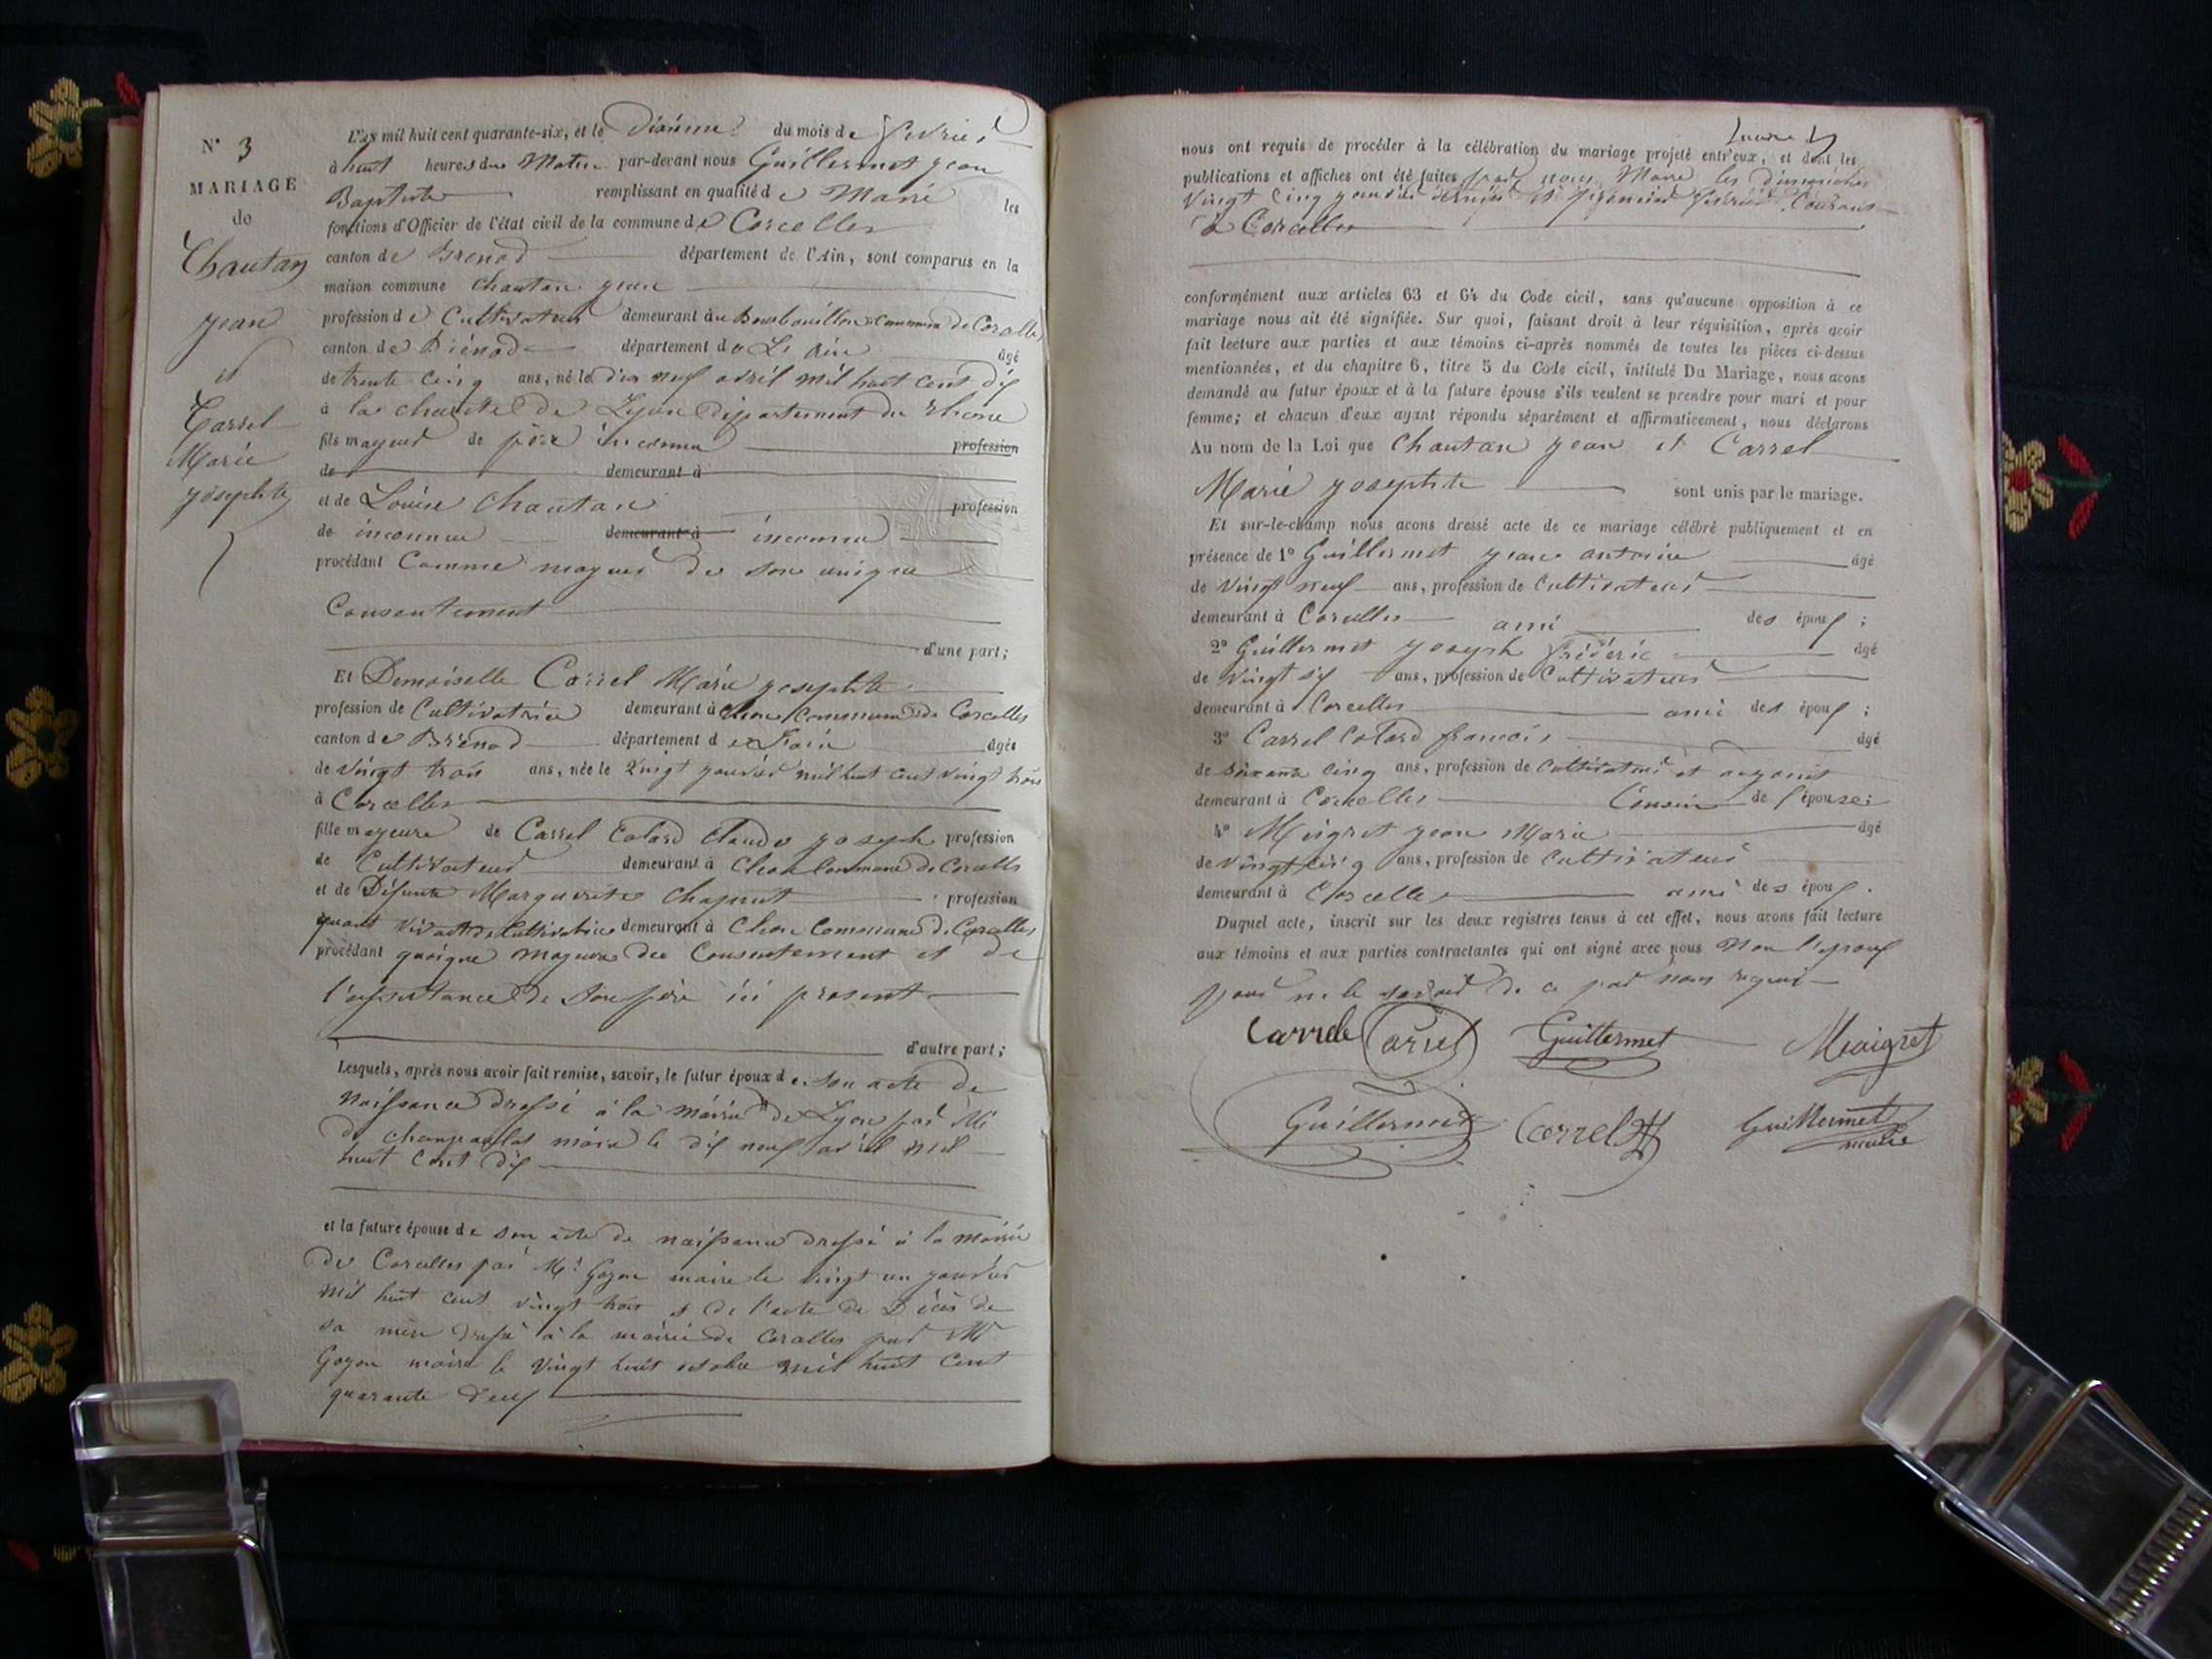 N° 3
MARIAGE
de
Chautan
jean
et
Carrel
Marie
josephte
L'an mil huit cent quarante-six, et le dixieme du mois de fevrier
à huit heures du Matin par-devant nous Guillermet jean
Baptiste remplissant en qualité de Maire les
fonctions d'Officier de l'état civil de la commune de Corcelles
canton de Brenod département de l'Ain, sont comparus en la
maison commune Chautan jean
profession de Cultivateur demeurant au Commune de Corcelles
canton de Brénod département de L'Ain âgé
de trente cinq ans, né le dix neuf avril mil huit cent dix
à la charité de Lyon département du Rhone
fils mayeur de père inconnu profession
de demeurant à
et de Louise Chautan profession
de inconnue demeurant à inconnue
procédant Comme mayeur de son unique
Consentement
d'une part;
Et Demoiselle Carrel Marie josephte
profession de Cultivatrice demeurant à Commune de Corcelles
canton de Brénod département de âgée
de vingt trois ans, née le vingt janvier mil huit cent vingt trois
à Corcelles
fille mayeure de Carrel Cotard Claude joseph profession
de Cultivateur demeurant à Commune de Corcelles
et de Défunte Marguerite Chapuit profession
quant vivait de Cultivatrice demeurant à Commune de Corcelles
procédant quoique mayeure du Consentement et de
l'assistance de Son père ici présent
d'autre part;
Lesquels, après nous avoir fait remise, savoir, le futur époux de son acte de
naissance dressé à la mairie de Lyon par Mr
maire le dix neuf avril mil
huit cent dix
et la future épouse de son acte de naissance dressé à la mairie
de Corcelles par Mr Goyon maire le vingt un janvier
mil huit cent vingt trois et de l'acte de Décès de
sa mère dressé à la mairie de Corcelles par Mr
Goyon maire le vingt huit octobre mil huit cent
quarante deux
nous ont requis de procéder à la célébration du mariage projeté entr'eux, et dont les
publications et affiches ont été faites par nous Maire les dimanches
vingt cinq janvier dernier et premier fevrier Courant
à Corcelles
conformément aux articles 63 et 64 du Code civil, sans qu'aucune opposition à ce
mariage nous ait été signifiée. Sur quoi, faisant droit à leur réquisition, après avoir
fait lecture aux parties et aux témoins ci-après nommés de toutes les pièces ci-dessus
mentionnées, et du chapitre 6, titre 5 du Code civil, intitulé Du Mariage, nous avons
demandé au futur époux et à la future épouse s'ils veulent se prendre pour mari et pour
femme; et chacun d'eux ayant répondu séparément et affirmativement, nous déclarons
Au nom de la Loi que Chautan jean et Carrel
Marie josephte sont unis par le mariage.
Et sur-le-champ nous avons dressé acte de ce mariage célébré publiquement et en
présence de 1° Guillermet jean antoine âgé
de vingt neuf ans, profession de Cultivateur
demeurant à Corcelles ami des époux ;
2° Guillermet joseph fréderic âgé
de vingt six ans, profession de Cultivateur
demeurant à Corcelles ami des époux ;
3° Carrel Cotard francois âgé
de soixante cinq ans, profession de Cultivateur et
demeurant à Corcelles Cousin de l'épouse;
4° Meigret jean Marie âgé
de vingt cinq ans, profession de Cultivateur
demeurant à Corcelles ami des époux.
Duquel acte, inscrit sur les deux registres tenus à cet effet, nous avons fait lecture
aux témoins et aux parties contractantes qui ont signé avec nous Non l'epoux
pour ne le savoir de ce par nous requis
Carrel Guillermet Meaigret
Guillermet Carrel Guillermet
maire